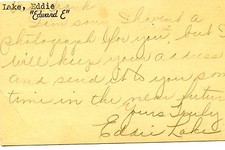 Lake, Eddie
"Edward E"
am sorry I haven't a
photograph for you, but I
will keep your address
and send it to you some
time in the near future
Yours Truly
Eddie Lake